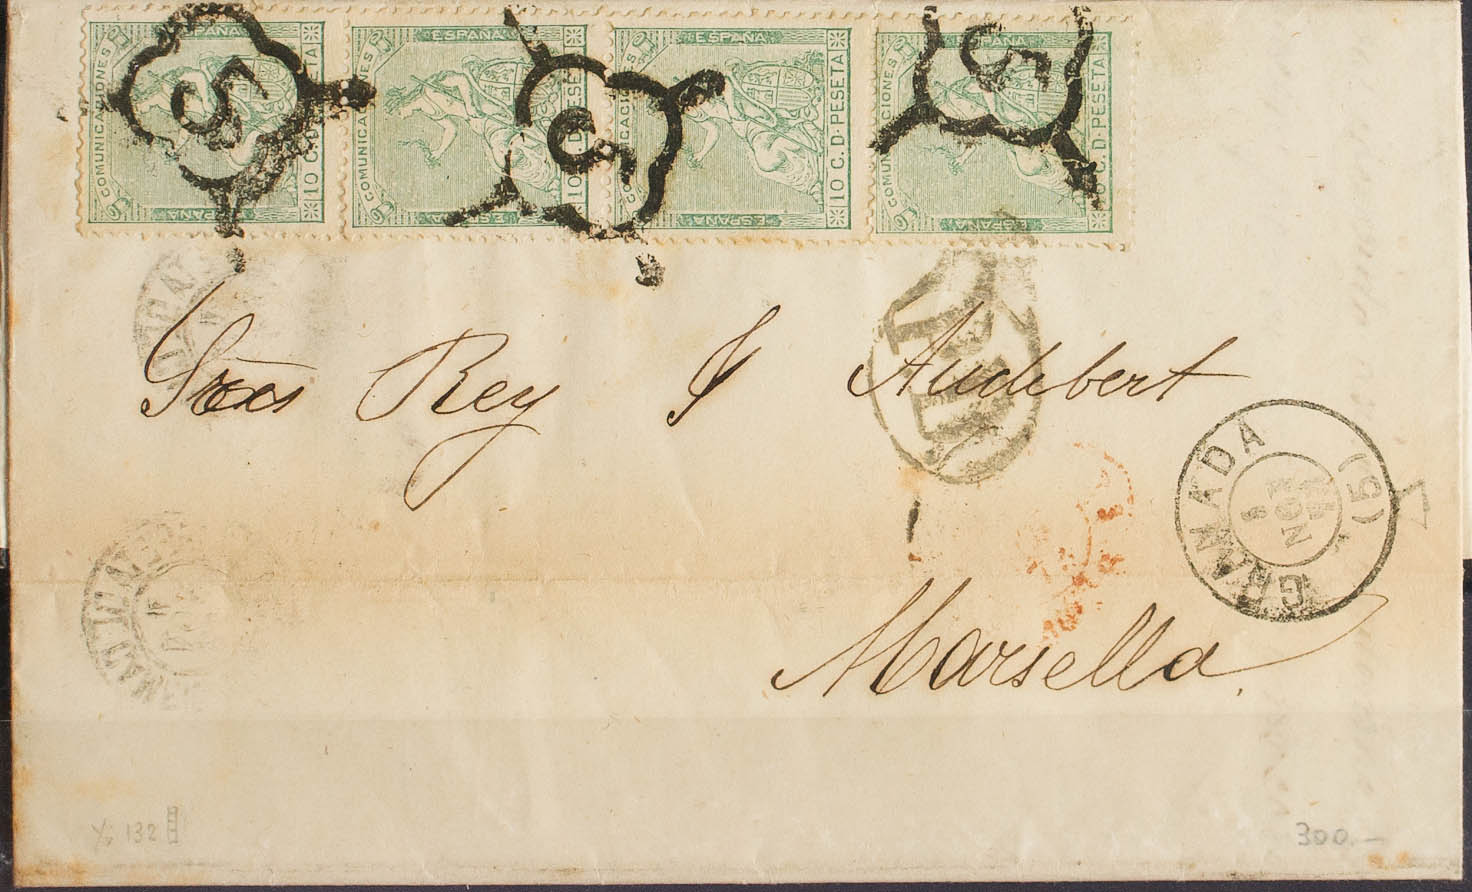 COMUNICACIONES ESPAÑA 10 C. D. PESETA ESPAÑA
COMUNICACIONES ESPAÑA 10 C. D. PESETA ESPAÑA
COMUNICACIONES ESPAÑA 10 C. D. PESETA ESPAÑA
COMUNICACIONES ESPAÑA 10 C. D. PESETA ESPAÑA
5
5
5
5
Sres Rey y Audibert
GRANADA (5)
8 NOV
Marsella.
132
300.—